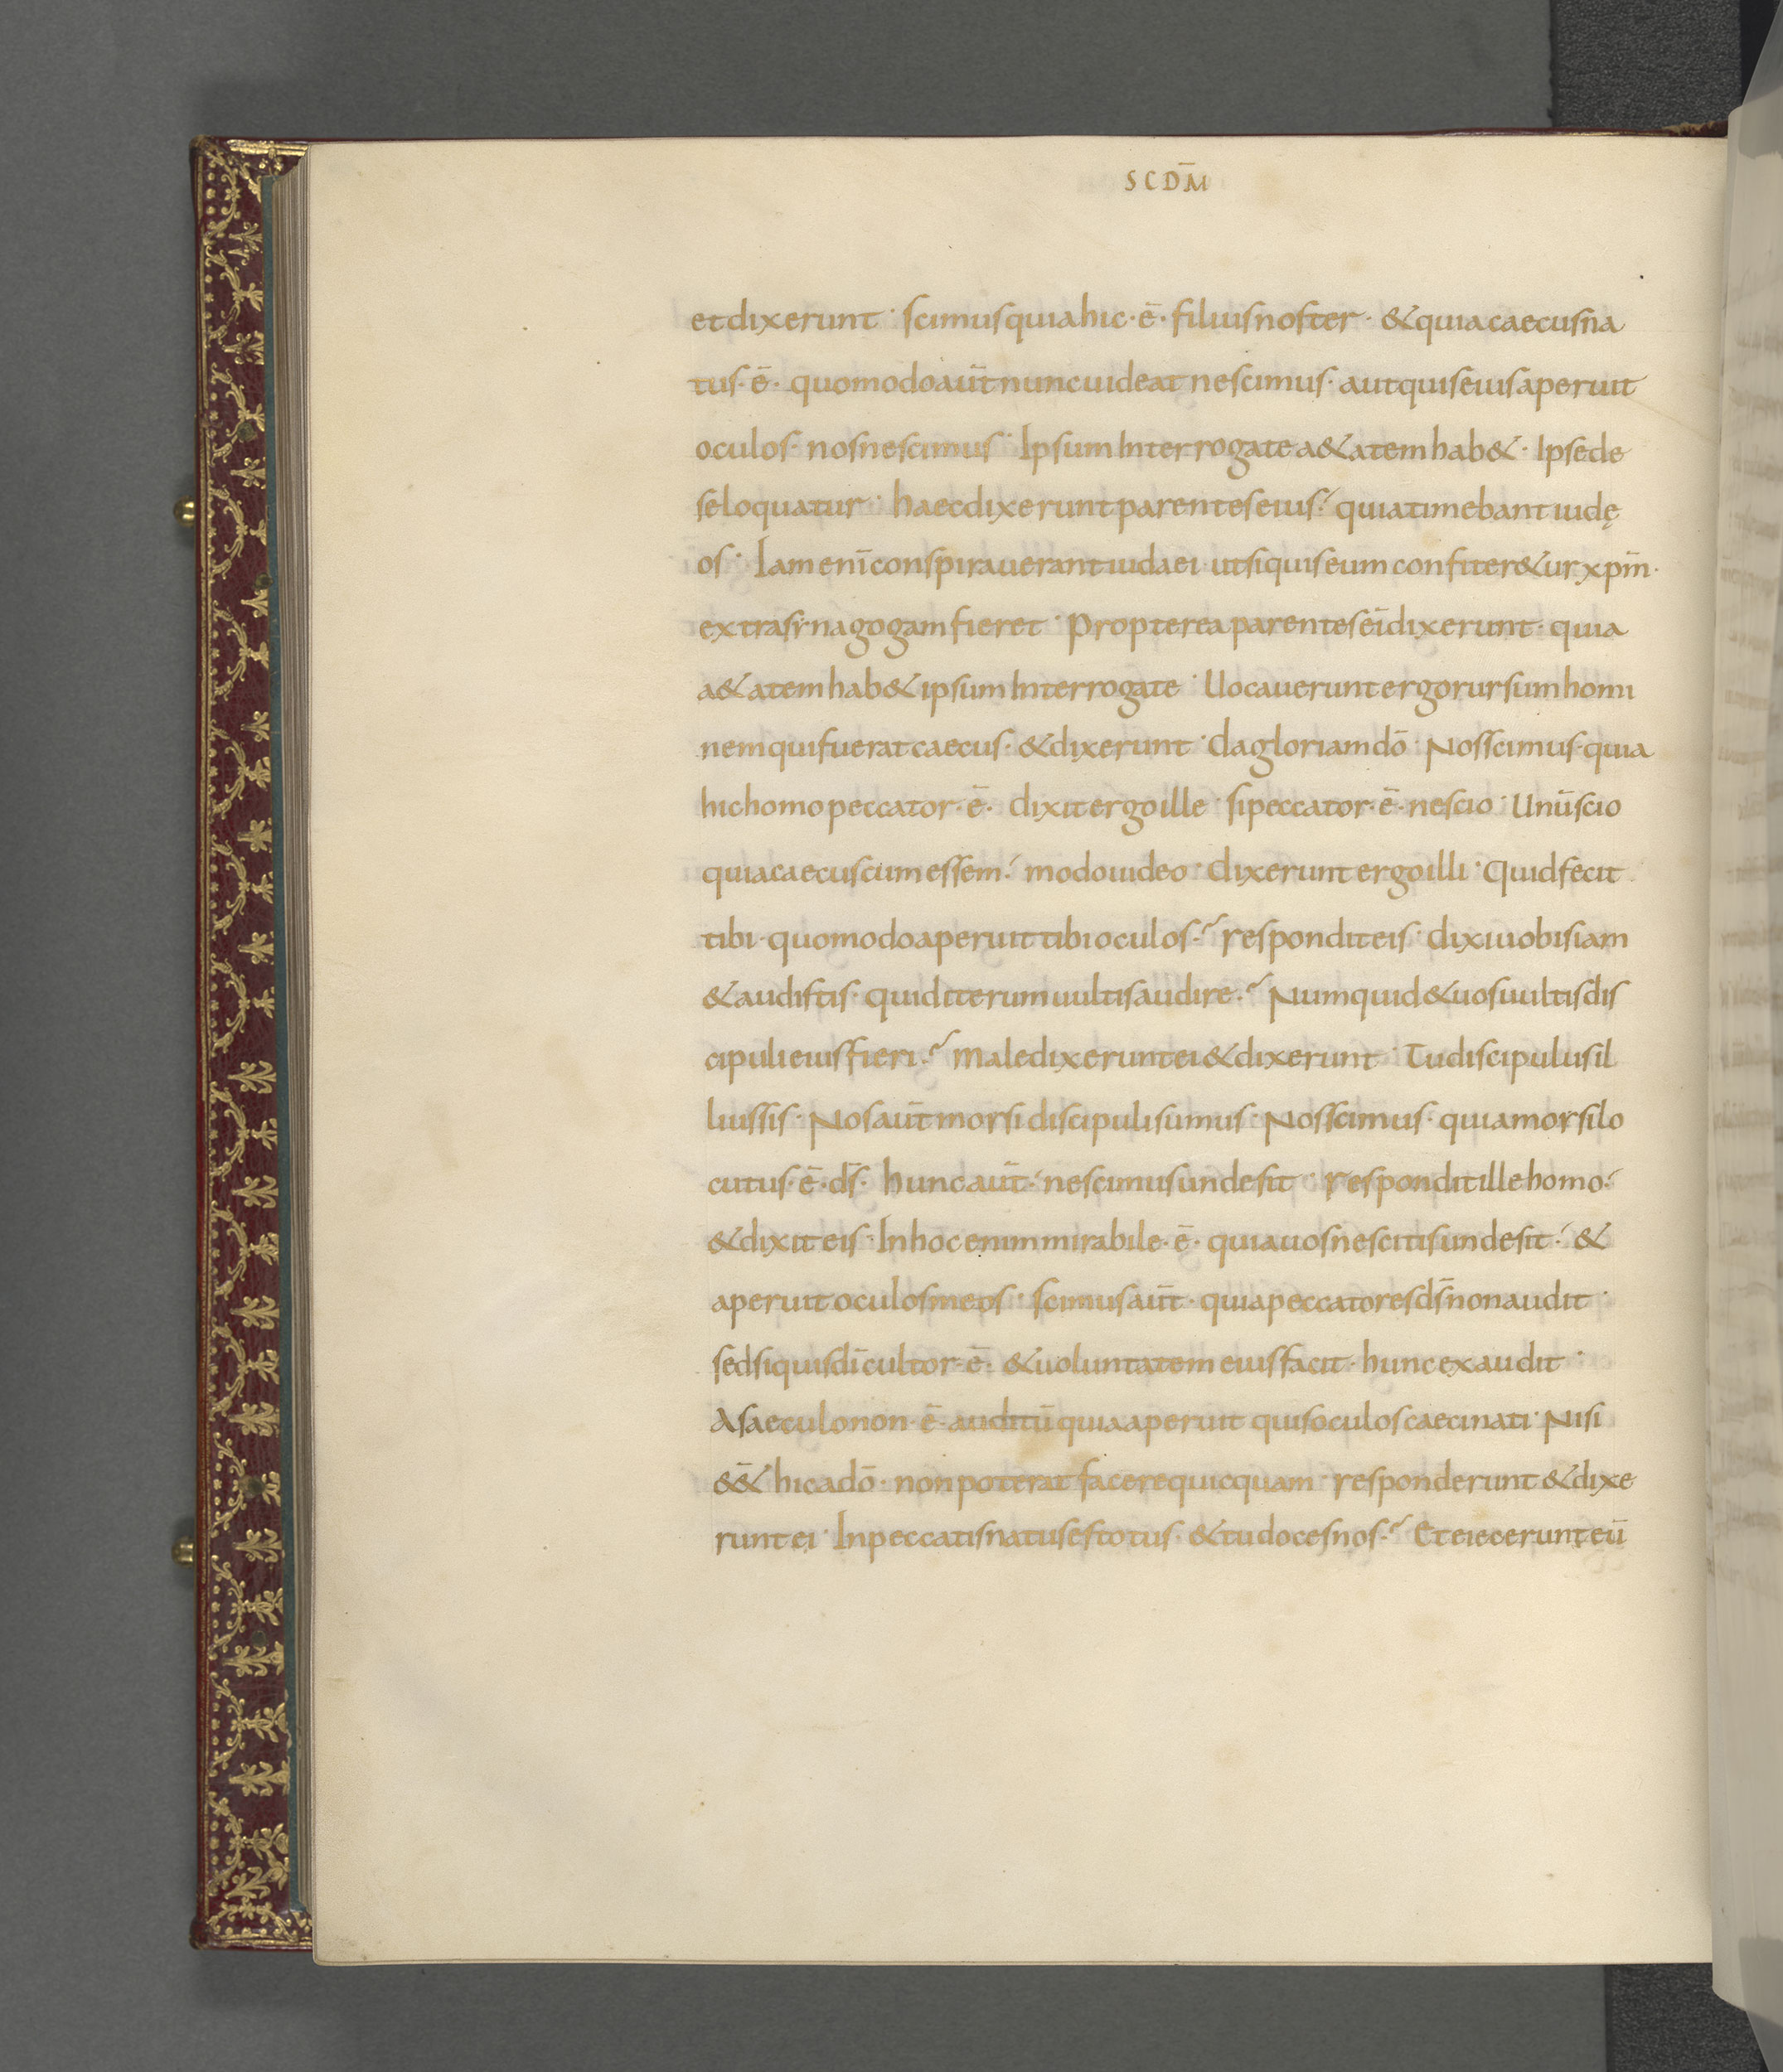 SCDM̄
et dixerunt · scimus quia hic · ē · filius noster · & quia caecus na
tus · ē · quomodo aūt nunc uideat nescimus · aut quis eius aperuit
oculos · nos nescimus · Ipsum Interrogate a&atem hab& · Ipse de
se loquatur · haec dixerunt parentes eius · quia timebant iudę
os · Iam enī conspirauerant iudaei · ut si quis eum confiter&ur xp̄m ·
extra synagogam fieret · Propterea parentes eī dixerunt · quia
a&atem hab& ipsum Interrogate · Uocauerunt ergo rursum homi
nem qui fuerat caecus · & dixerunt · da gloriam dō · Nos scimus · quia
hic homo peccator · ē · dixit ergo ille · si peccator · ē · nescio · Unū scio
quia caecus cum essem · modo uideo · dixerunt ergo illi · Quid fecit
tibi · quomodo aperuit tibi oculos ·? respondit eis · dixi uobis iam
& audistis · quid iterum uultis audire ·? Numquid & uos uultis dis
cipuli eius fieri ·? Maledixerunt ei & dixerunt · Tu discipulus il
lius sis · Nos aūt moysi discipuli sumus · Nos scimus · quia moysi lo
cutus · ē · ds̄ · hunc aūt · nescimus unde sit · respondit ille homo ·
& dixit eis · In hoc enim mirabile · ē · quia uos nescitis unde sit · &
aperuit oculos meos · scimus aūt · quia peccatores ds̄ non audit ·
sed si quis dī cultor · ē · & uoluntatem eius facit · hunc exaudit ·
A saeculo non · ē · auditū quia aperuit quis oculos caeci nati · Nisi
ēē& hic a dō · non poterat facere quicquam · responderunt & dixe
runt ei · In peccatis natus es totus · & tu doces nos ·? Et eiecerunt eū